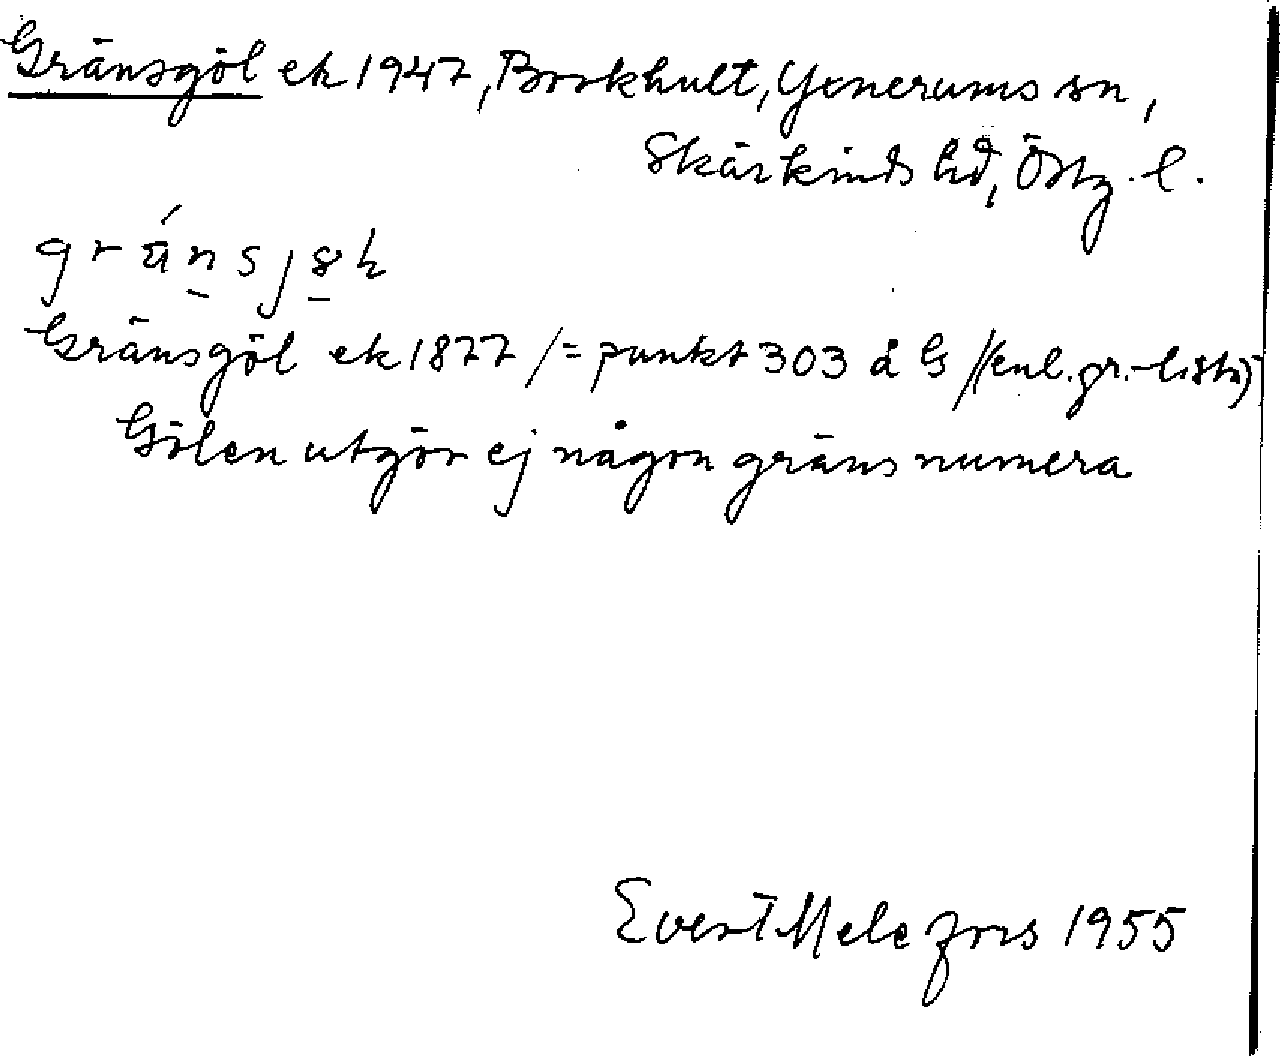 Gränsgöl ek 1947, Borkhult, Yxnerums sn,
Skärkinds hd, Östg. l.
Gränsgöl ek 1877 /= punkt 303 å G /(enl. gr.-lista)
Gölen utgör ej någon gräns numera
Evert Melefors 1955